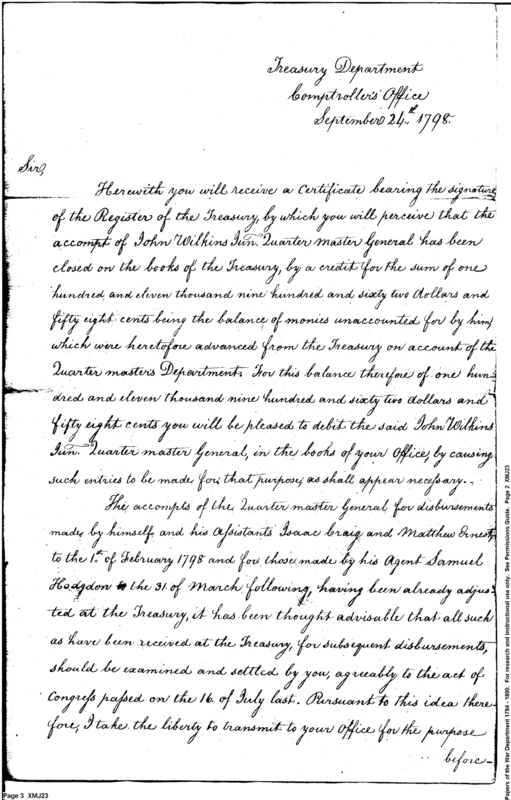 Treasury Department
Comptroller's Office
September 24.th 1798.
Sir,
Herewith you will receive a Certificate bearing the signature
of the Register of the Treasury, by which you will perceive that the
accompt of John Wilkins Jun. Quarter Master General has been
closed on the books of the Treasury, by a credit for the sum of one
hundred and eleven thousand nine hundred and sixty two dollars and
fifty eight cents being the balance of monies unaccounted for by him,
which were heretofore advanced from the Treasury on account of the
Quarter master's Department. For this balance therefore of one hun-
dred and eleven thousand nine hundred and sixty two dollars and
fifty eight cents you will be pleased to debit the said John Wilkins
Jun. Quarter master General, in the books of your Office, by causing
such entries to be made for that purpose, as shall appear necessary.-
The accompts of the Quarter master General for disbursements
made by himself and his Assistants Isaac Craig and Matthew Ernest,
to the 1.st of February 1798 and for those made by his Agent Samuel
Hodgdon to the 31. of March following, having been already adjus-
ted at the Treasury, it has been thought advisable that all such
as have been received at the Treasury, for subsequent disbursements,
should be examined and settled by you, agreeably to the act of
Congress passed on the 16. of July last. Pursuant to this idea there-
fore, I take the liberty to transmit to your Office for the purpose
before-
Page 3 XMJ23
Papers of the War Department 1784 - 1800. For research and instructional use only. See Permissions Guide. Page 2 XMJ23